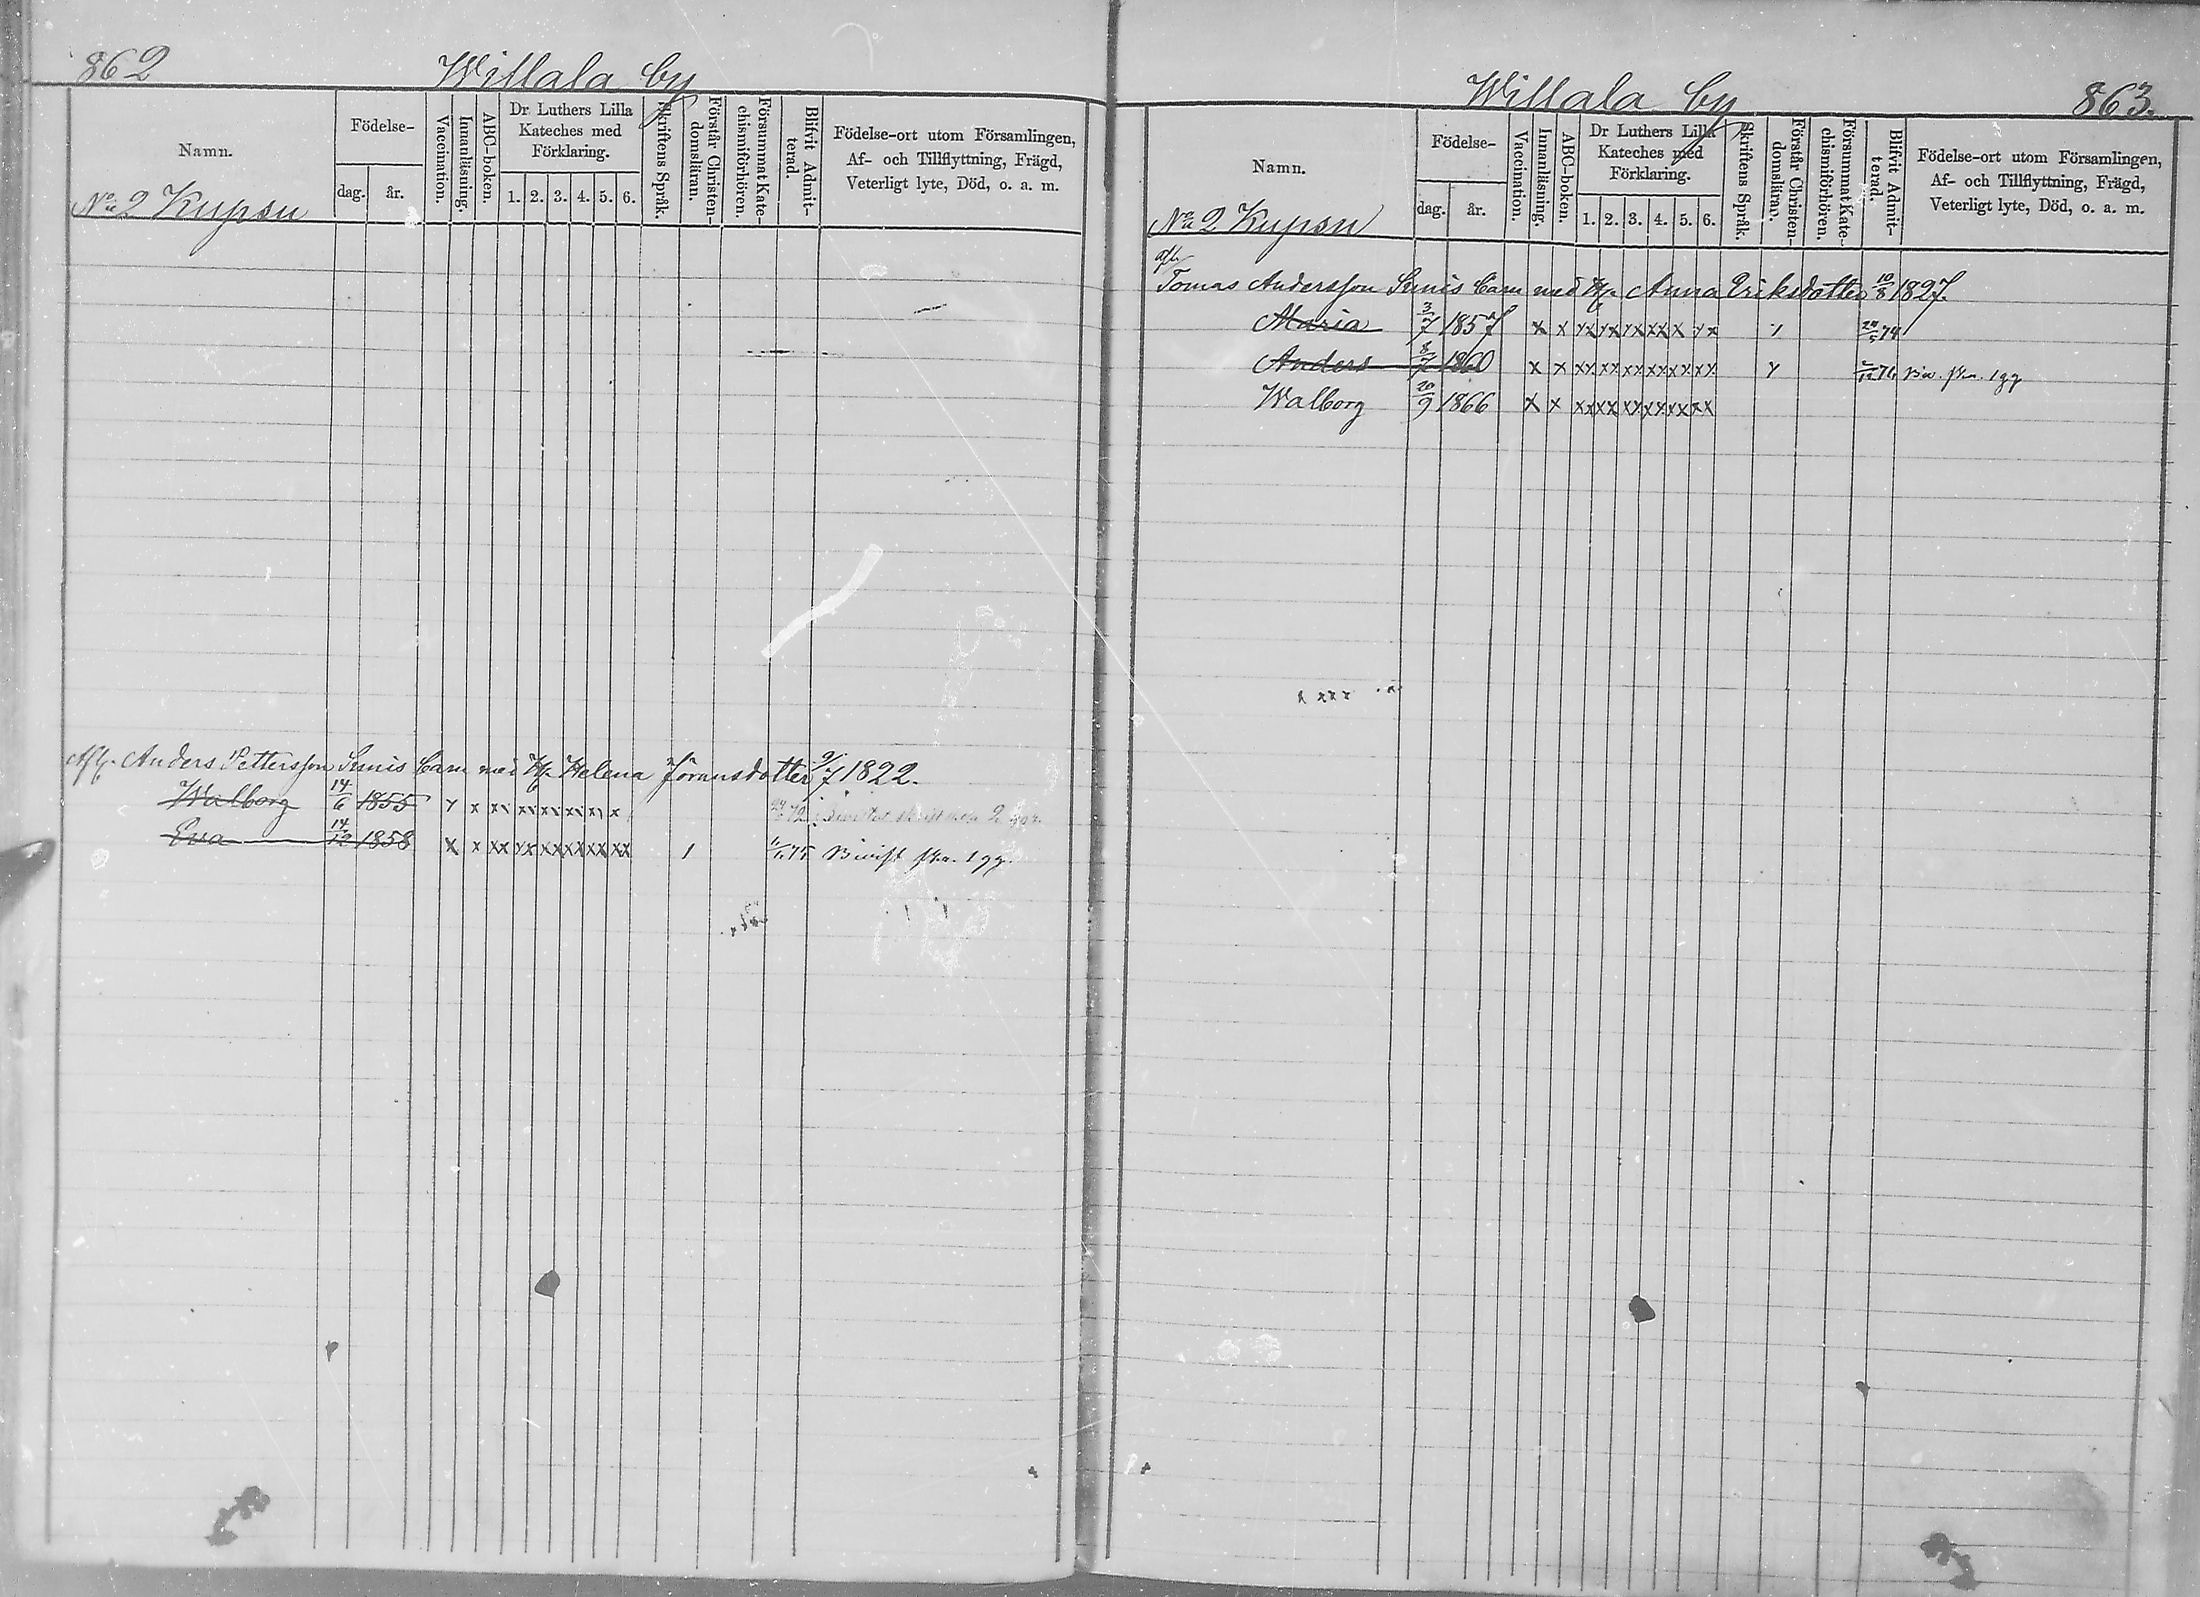 862
Willala by
Namn.
Födelse-
dag. år.
Vaccination.
Innanläsning.
ABC-boken.
Dr Luthers Lilla
Kateches med
Förklaring.
1. 2. 3. 4. 5. 6.
Skriftens Språk.
Förstår Christen-
domsläran.
Försummat Kate-
chismiförhören.
Blifvit Admit-
terad.
Födelse-ort utom Församlingen,
Af- och Tillflyttning, Frägd,
Veterligt lyte, Död, o. a. m.
No 2 Kupsu
Afl. Anders Pettersson Sunis barn med H. Helena Jöransdotter 9/7 1822.
Walborg 14/6 1855 x x xx xx xx xx xx x
Eva 14/12 1858 x x xx xx xx xx xx xx 1 75 Bevist 1 gg.
Willala by
863.
Namn.
Födelse-
dag. år.
Vaccination.
Innanläsning.
ABC-boken.
Dr Luthers Lilla
Kateches med
Förklaring.
1. 2. 3. 4. 5. 6.
Skriftens Språk.
Förstår Christen-
domsläran.
Försummat Kate-
chismiförhören.
Blifvit Admit-
terad.
Födelse-ort utom Församlingen,
Af- och Tillflyttning, Frägd,
Veterligt lyte, Död, o. a. m.
No 2 Kupsu
afl.
Tomas Andersson Sunis barn med H. Anna Eriksdotter 10/8 1827.
Maria 3/7 1857 x x xx xx xx xx x xx 74
Anders 8/7 1860 x x xx xx xx xx xx xx 76 1 gg
Walborg 20/9 1866 x x xx xx xx xx xx xx